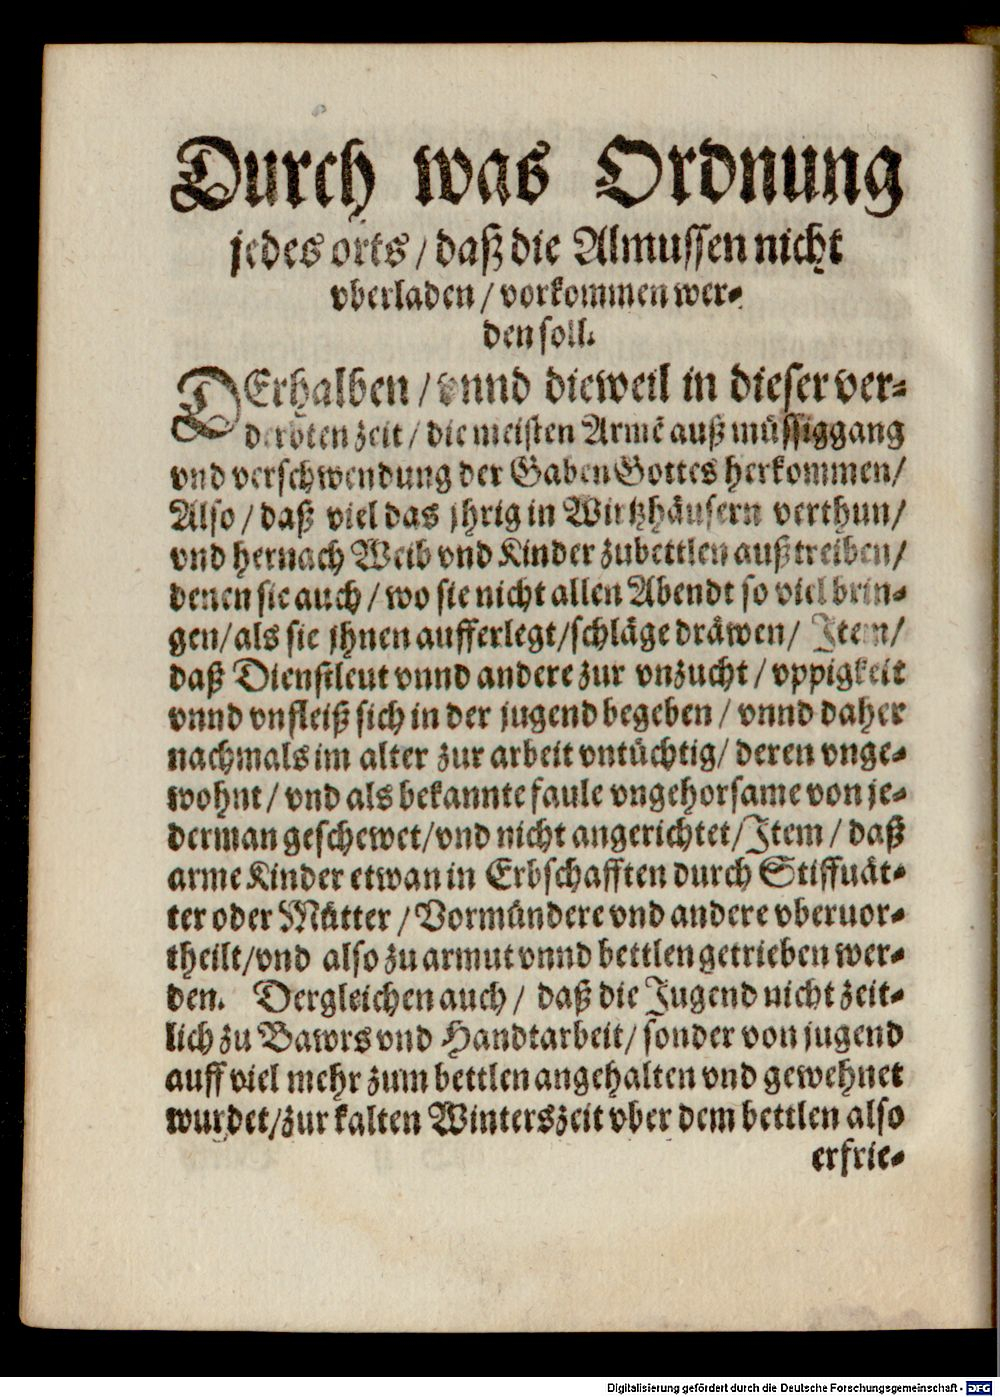 Durch was Ordnung
jedes orts / daß die Almussen nicht
vberladen / vorkommen wer-
den soll.
DErhalben / vnnd dieweil in dieser ver-
derbten zeit / die meisten Armē auß müssiggang
vnd verschwendung der Gaben Gottes herkommen /
Also / daß viel das jhrig in Wirtzhäusern verthun /
vnd hernach Weib vnd Kinder zubettlen außtreiben /
denen sie auch / wo sie nicht allen Abendt so viel brin-
gen / als sie jhnen aufferlegt / schläge dräwen / Item /
daß Dienstleut vnnd andere zur vnzucht / vppigkeit
vnnd vnfleiß sich in der jugend begeben / vnnd daher
nachmals im alter zur arbeit vntüchtig / deren vnge-
wohnt / vnd als bekannte faule vngehorsame von je-
derman geschewet / vnd nicht angerichtet / Item / daß
arme Kinder etwan in Erbschafften durch Stiffuät-
ter oder Mütter / Vormündere vnd andere vberuor-
theilt / vnd also zu armut vnnd bettlen getrieben wer-
den. Dergleichen auch / daß die Jugend nicht zeit-
lich zu Bawrs vnd Handtarbeit / sonder von jugend
auff viel mehr zum bettlen angehalten vnd gewehnet
wurdet / zur kalten Winterszeit vber dem bettlen also
erfrie-
Digitalisierung gefördert durch die Deutsche Forschungsgemeinschaft - DFG